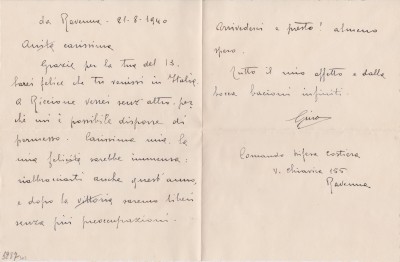 da Ravenna - 21-8-1940
Anita carissima
Grazie per la tua del 13.
Sarei felice che tu venissi in Italia.
A Riccione verrei senz'altro, per
di mi è possibile disporre di
permesso. Carissima mia, la
mia felicità sarebbe immensa:
riabbracciarti anche quest'anno,
e dopo la vittoria saremo liberi
senza più preoccupazioni.
Arrivederci e presto! almeno
spero.
Tutto il mio affetto e dalla
bocca bacioni infiniti.
Gino
Comando Difesa Costiera
V. Chiavica
Ravenna